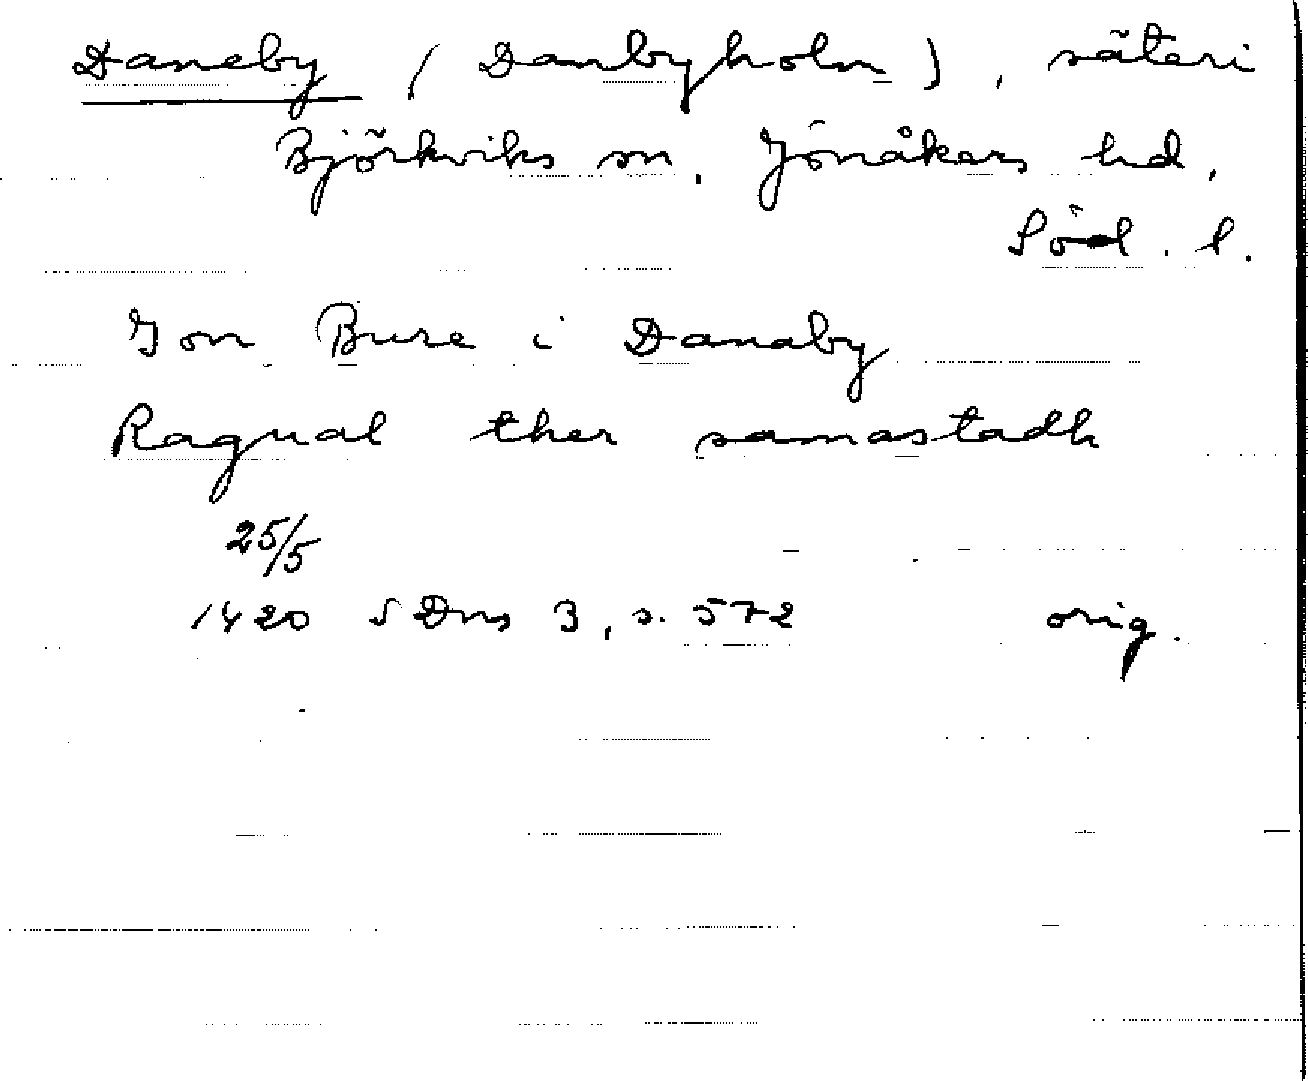 Daneby (Danbyholm), säteri
Björkviks sn. Jönåkers hd,
Söd. l.
Jon Bure i Danaby
Ragual ther samastadh
25/5
1420 SDns 3, s. 572 orig.